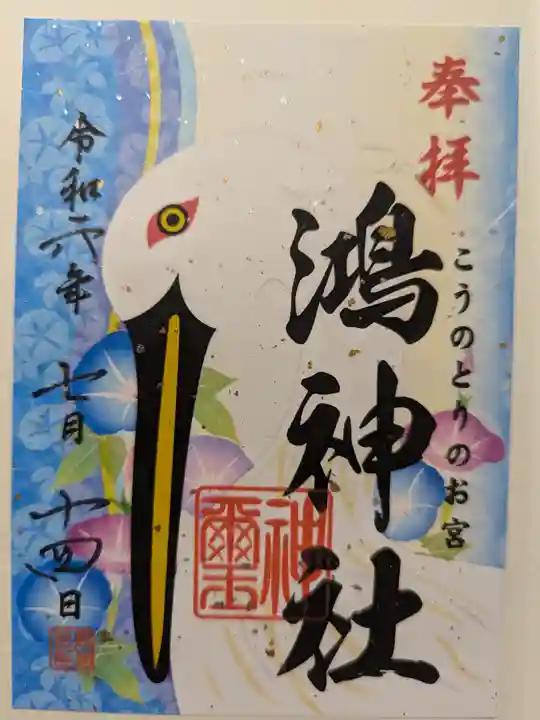 奉拝
こうのとりのお宮
鴻神社
神璽
令和六年 七月 十四日